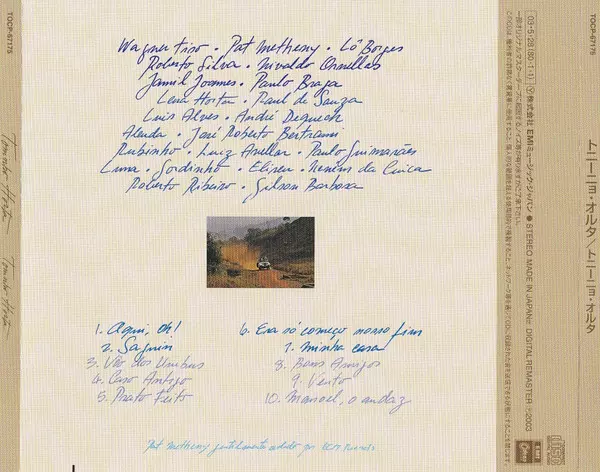 TOCP-67175
Toninho Horta Toninho Horta
Wagner Tiso • Pat Metheny • Lô Borges
Roberto Silva • Nivaldo Ornellas
Jamil Joanes • Paulo Braga
Lena Horta • Raul de Souza
Luis Alves • André Dequech
Aleuda • José Roberto Bertrami
Rubinho • Luiz Avellar • Paulo Guimarães
Luna • Gordinho • Eliseu • Neném da Cuica
Roberto Ribeiro • Gilson Barbosa
1. Aqui, oh!
2. Saguin
3. Vão dos Urubus
4. Caso Antigo
5. Prato Feito
6. Era só começo nosso fim
7. Minha casa
8. Bons Amigos
9. Vento
10. Manoel, o audaz
Pat Metheny gentilmente cedido por ECM Records
TOCP-67175
トニーニョ・オルタ/トニーニョ・オルタ
STEREO MADE IN JAPAN DIGITAL REMASTER ℗2003